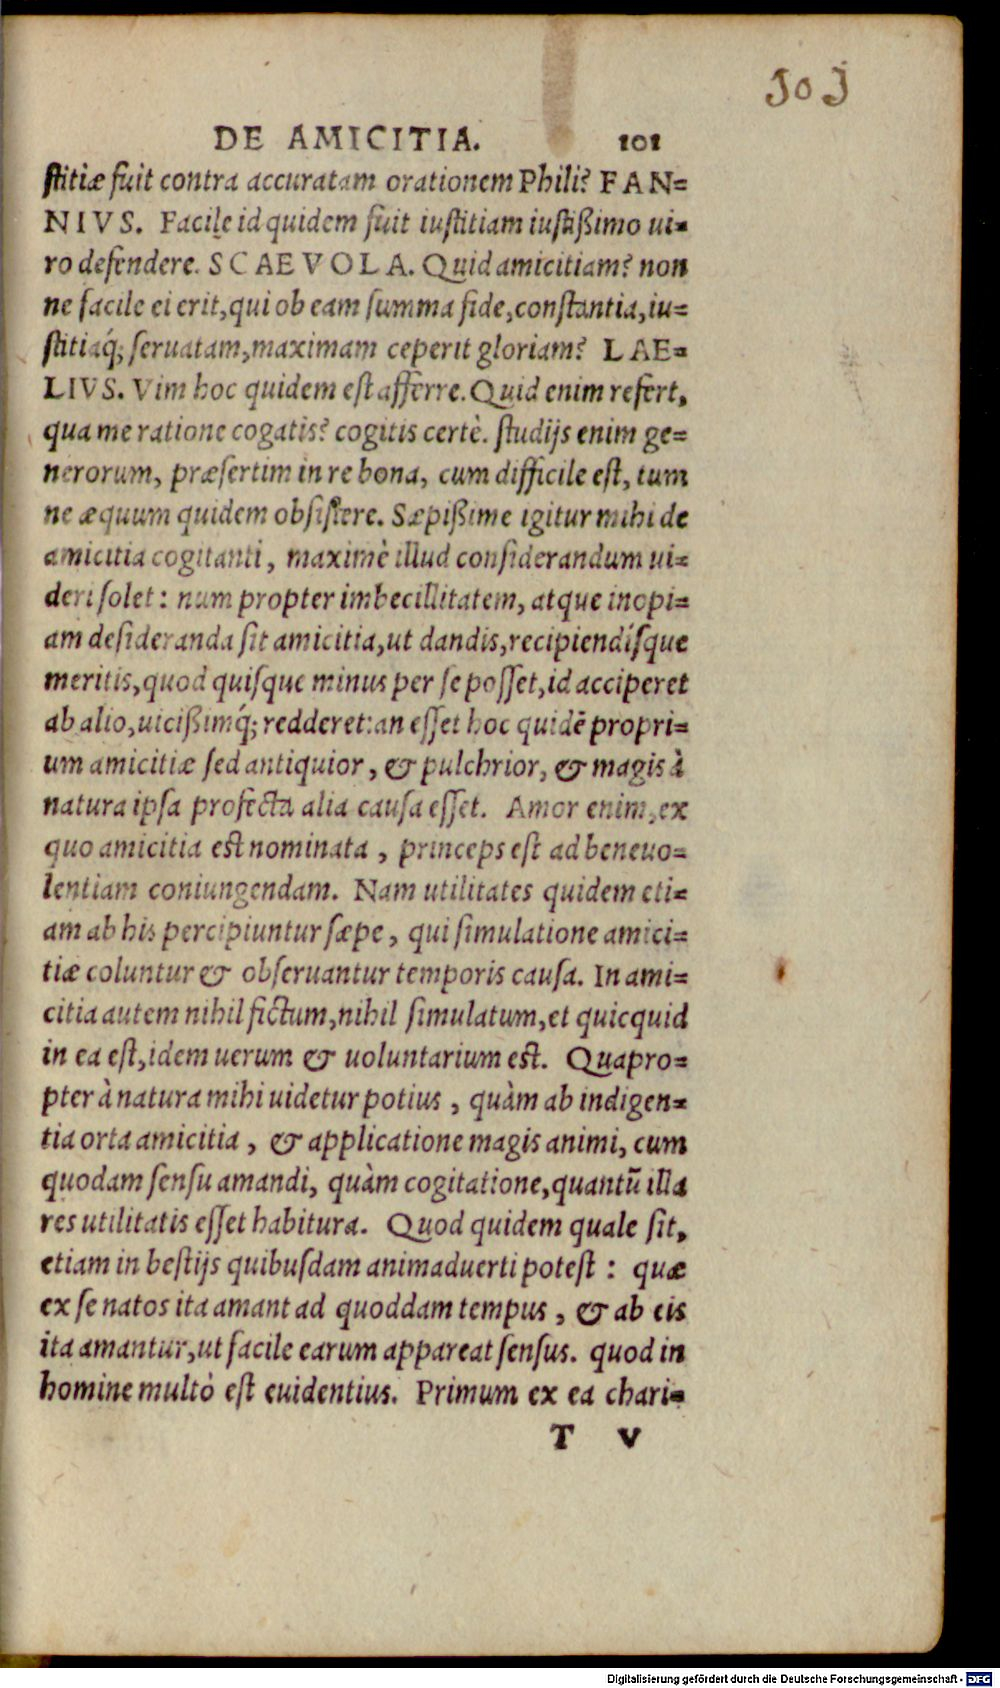 101
DE AMICITIA. 101
ſtitiæ fuit contra accuratam orationem Phili? FAN-
NIVS. Facile id quidem fuit iuſtitiam iuſtißimo ui-
ro defendere. SCAEVOLA. Quid amicitiam? non
ne facile ei erit, qui ob eam ſumma fide, conſtantia, iu-
ſtitiaq́; ſeruatam, maximam ceperit gloriam? LAE-
LIVS. Vim hoc quidem eſt afferre. Quid enim refert,
qua me ratione cogatis? cogitis certè. ſtudijs enim ge-
nerorum, præſertim in re bona, cum difficile eſt, tum
ne æquum quidem obſiſtere. Sæpißime igitur mihi de
amicitia cogitanti, maximè illud conſiderandum ui-
deri ſolet: num propter imbecillitatem, atque inopi-
am deſideranda ſit amicitia, ut dandis, recipiendíſque
meritis, quod quiſque minus per ſe poſſet, id acciperet
ab alio, uicißimq́; redderet: an eſſet hoc quidē propri-
um amicitiæ ſed antiquior, & pulchrior, & magis à
natura ipſa profecta alia cauſa eſſet. Amor enim, ex
quo amicitia eſt nominata, princeps eſt ad beneuo-
lentiam coniungendam. Nam utilitates quidem eti-
am ab his percipiuntur ſæpe, qui ſimulatione amici-
tiæ coluntur & obſeruantur temporis cauſa. In ami-
citia autem nihil fictum, nihil ſimulatum, et quicquid
in ea eſt, idem uerum & uoluntarium eſt. Quapro-
pter à natura mihi uidetur potius, quàm ab indigen-
tia orta amicitia, & applicatione magis animi, cum
quodam ſenſu amandi, quàm cogitatione, quantū illa
res utilitatis eſſet habitura. Quod quidem quale ſit,
etiam in beſtijs quibuſdam animaduerti poteſt: quæ
ex ſe natos ita amant ad quoddam tempus, & ab eis
ita amantur, ut facile earum appareat ſenſus. quod in
homine multò eſt euidentius. Primum ex ea chari-
T V
Digitalisierung gefördert durch die Deutsche Forschungsgemeinschaft - DFG